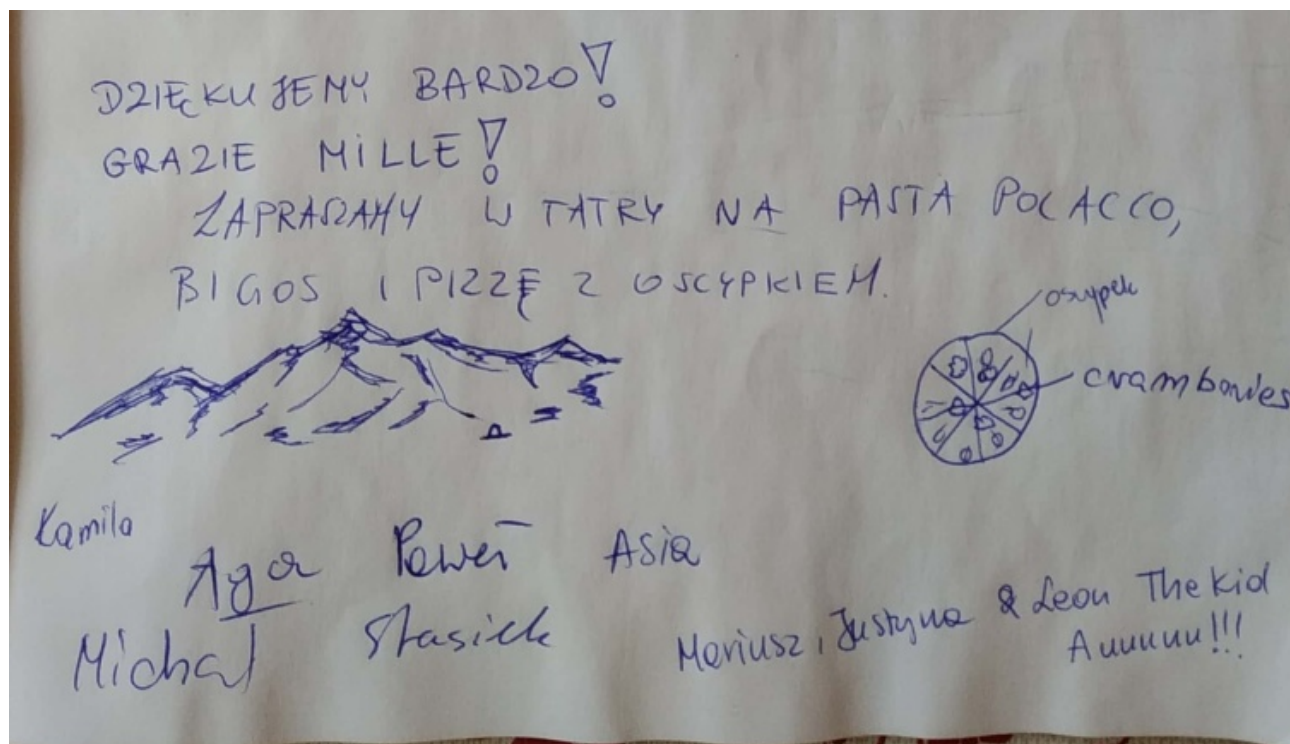 DZIĘKUJEMY BARDZO!
GRAZIE MILLE!
ZAPRASZAMY W TATRY NA PASTA POLACCO,
BIGOS I PIZZĘ Z OSCYPKIEM.
oscypek
cramberries
Kamila
Aga Paweł Asia
Michał Stasiek
Mariusz, Justyna & Leon The Kid
Auuuuu!!!